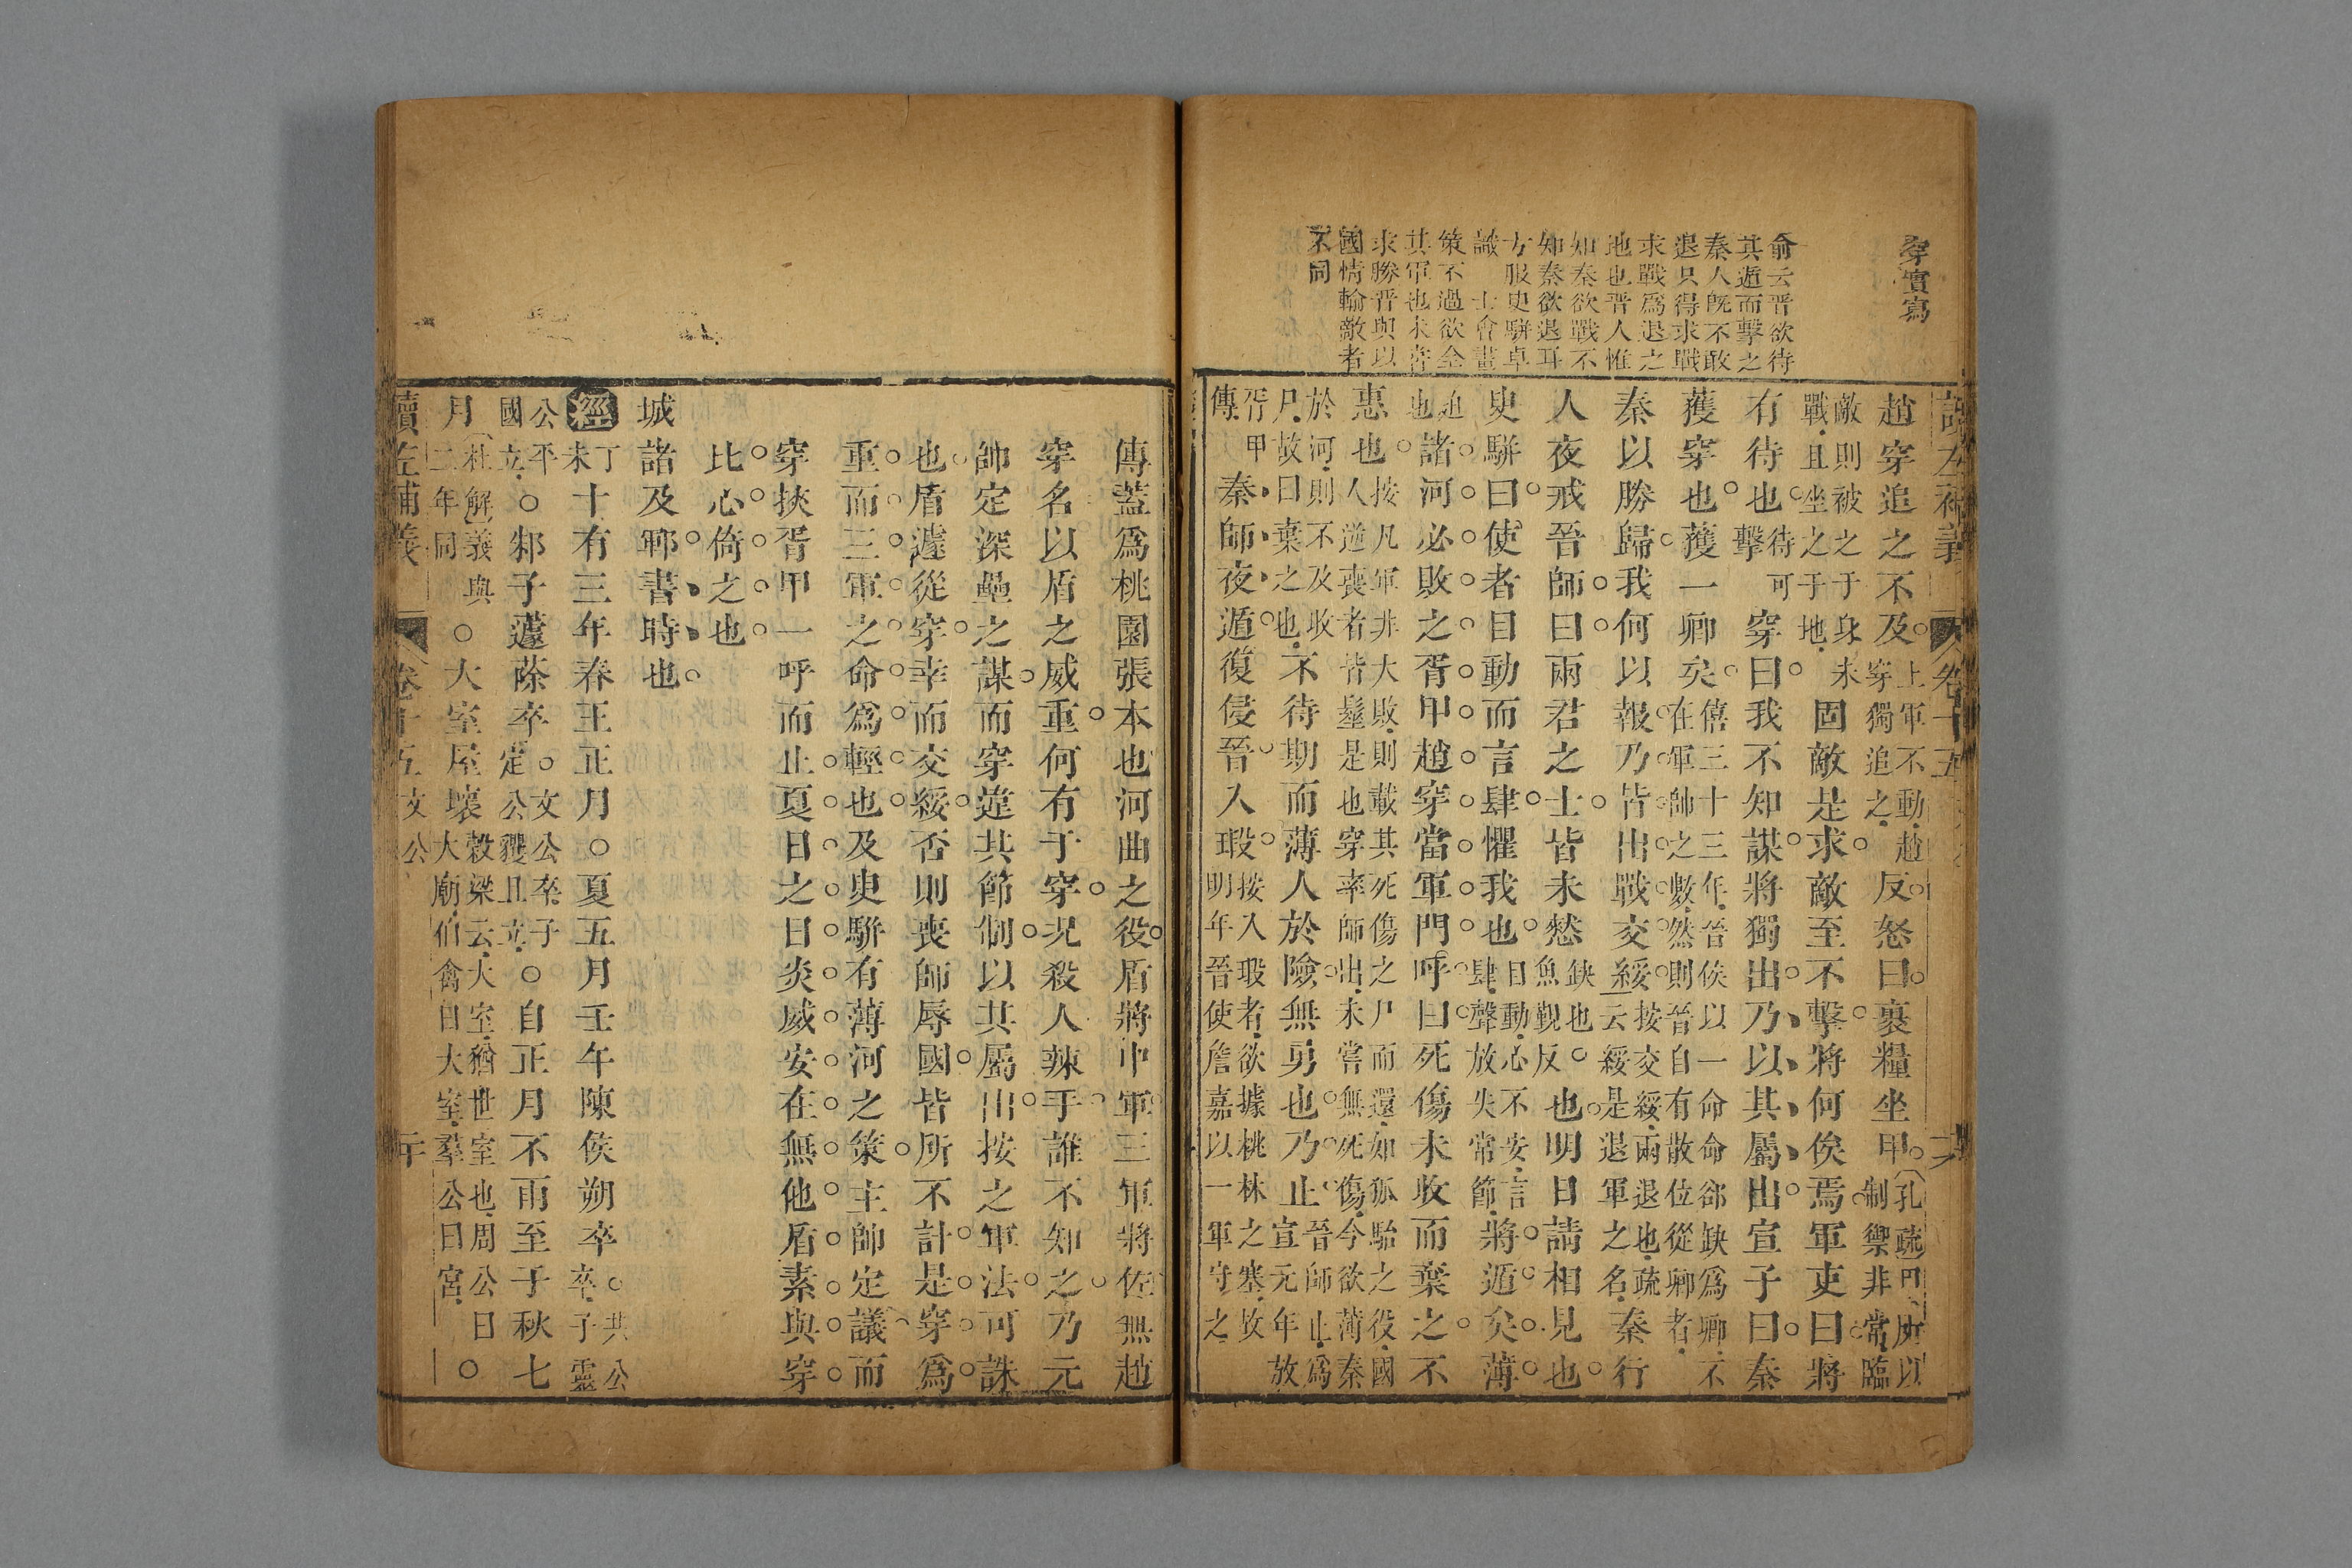 讀左補義 卷十五
穿實寫
俞云晉欲待
其遁而擊之
秦人旣不敢
退只得求戰
求戰爲退之
地也晉人惟
如秦欲戰不
知秦欲退耳
方服臾騈卓
識 士會畫
策不過欲全
其軍也未嘗
求勝晉與以
國情輸敵者
不同
趙穿追之不及上軍不動趙穿獨追之反怒曰裹糧坐甲孔疏甲所以制禦非常臨
敵則被之于身未戰且坐之于地固敵是求敵至不擊將何俟焉軍吏曰將
有待也待可擊穿曰我不知謀將獨出乃以其屬出宣子曰秦
獲穿也獲一卿矣僖三十三年晉侯以一命命郤缺爲卿不在軍帥之數然則晉自有散位從卿者
秦以勝歸我何以報乃皆出戰交綏按交綏兩退也疏云綏是退軍之名秦行
人夜戒晉師曰兩君之士皆未憖缺也魚覲反也明日請相見也
臾騈曰使者目動而言肆懼我也目動心不安言肆聲放失常節將遁矣薄
追也諸河必敗之胥甲趙穿當軍門呼曰死傷未收而棄之不
惠也按凡軍非大敗則載其死傷之尸而還如狐駘之役國人逆喪者皆髽是也穿率師出未嘗無死傷今欲薄秦
於河則不及收尸故曰棄之也不待期而薄人於險無勇也乃止晉師止爲宣元年放
胥甲傳秦師夜遁復侵晉入瑕按入瑕者欲據桃林之塞故明年晉使詹嘉以一軍守之
傳蓋爲桃園張本也河曲之役盾將中軍三軍將佐無趙
穿名以盾之威重何有于穿況殺人辣手誰不知之乃元
帥定深壘之謀而穿違其節制以其屬出按之軍法可誅
也盾遽從穿幸而交綏否則喪師辱國皆所不計是穿爲
重而三軍之命爲輕也及臾騈有薄河之策主帥定議而
穿挾胥甲一呼而止夏日之日炎威安在無他盾素與穿
比心倚之也
城諸及鄆書時也
經丁未十有三年春王正月○夏五月壬午陳侯朔卒共公卒子靈
公平國立○邾子蘧蒢卒文公卒子定公貜且立○自正月不雨至于秋七
月杜解義與二年同○大室屋壞穀梁云大室猶世室也周公曰大廟伯禽曰大室羣公曰宮○
讀左補義 卷十五 文公